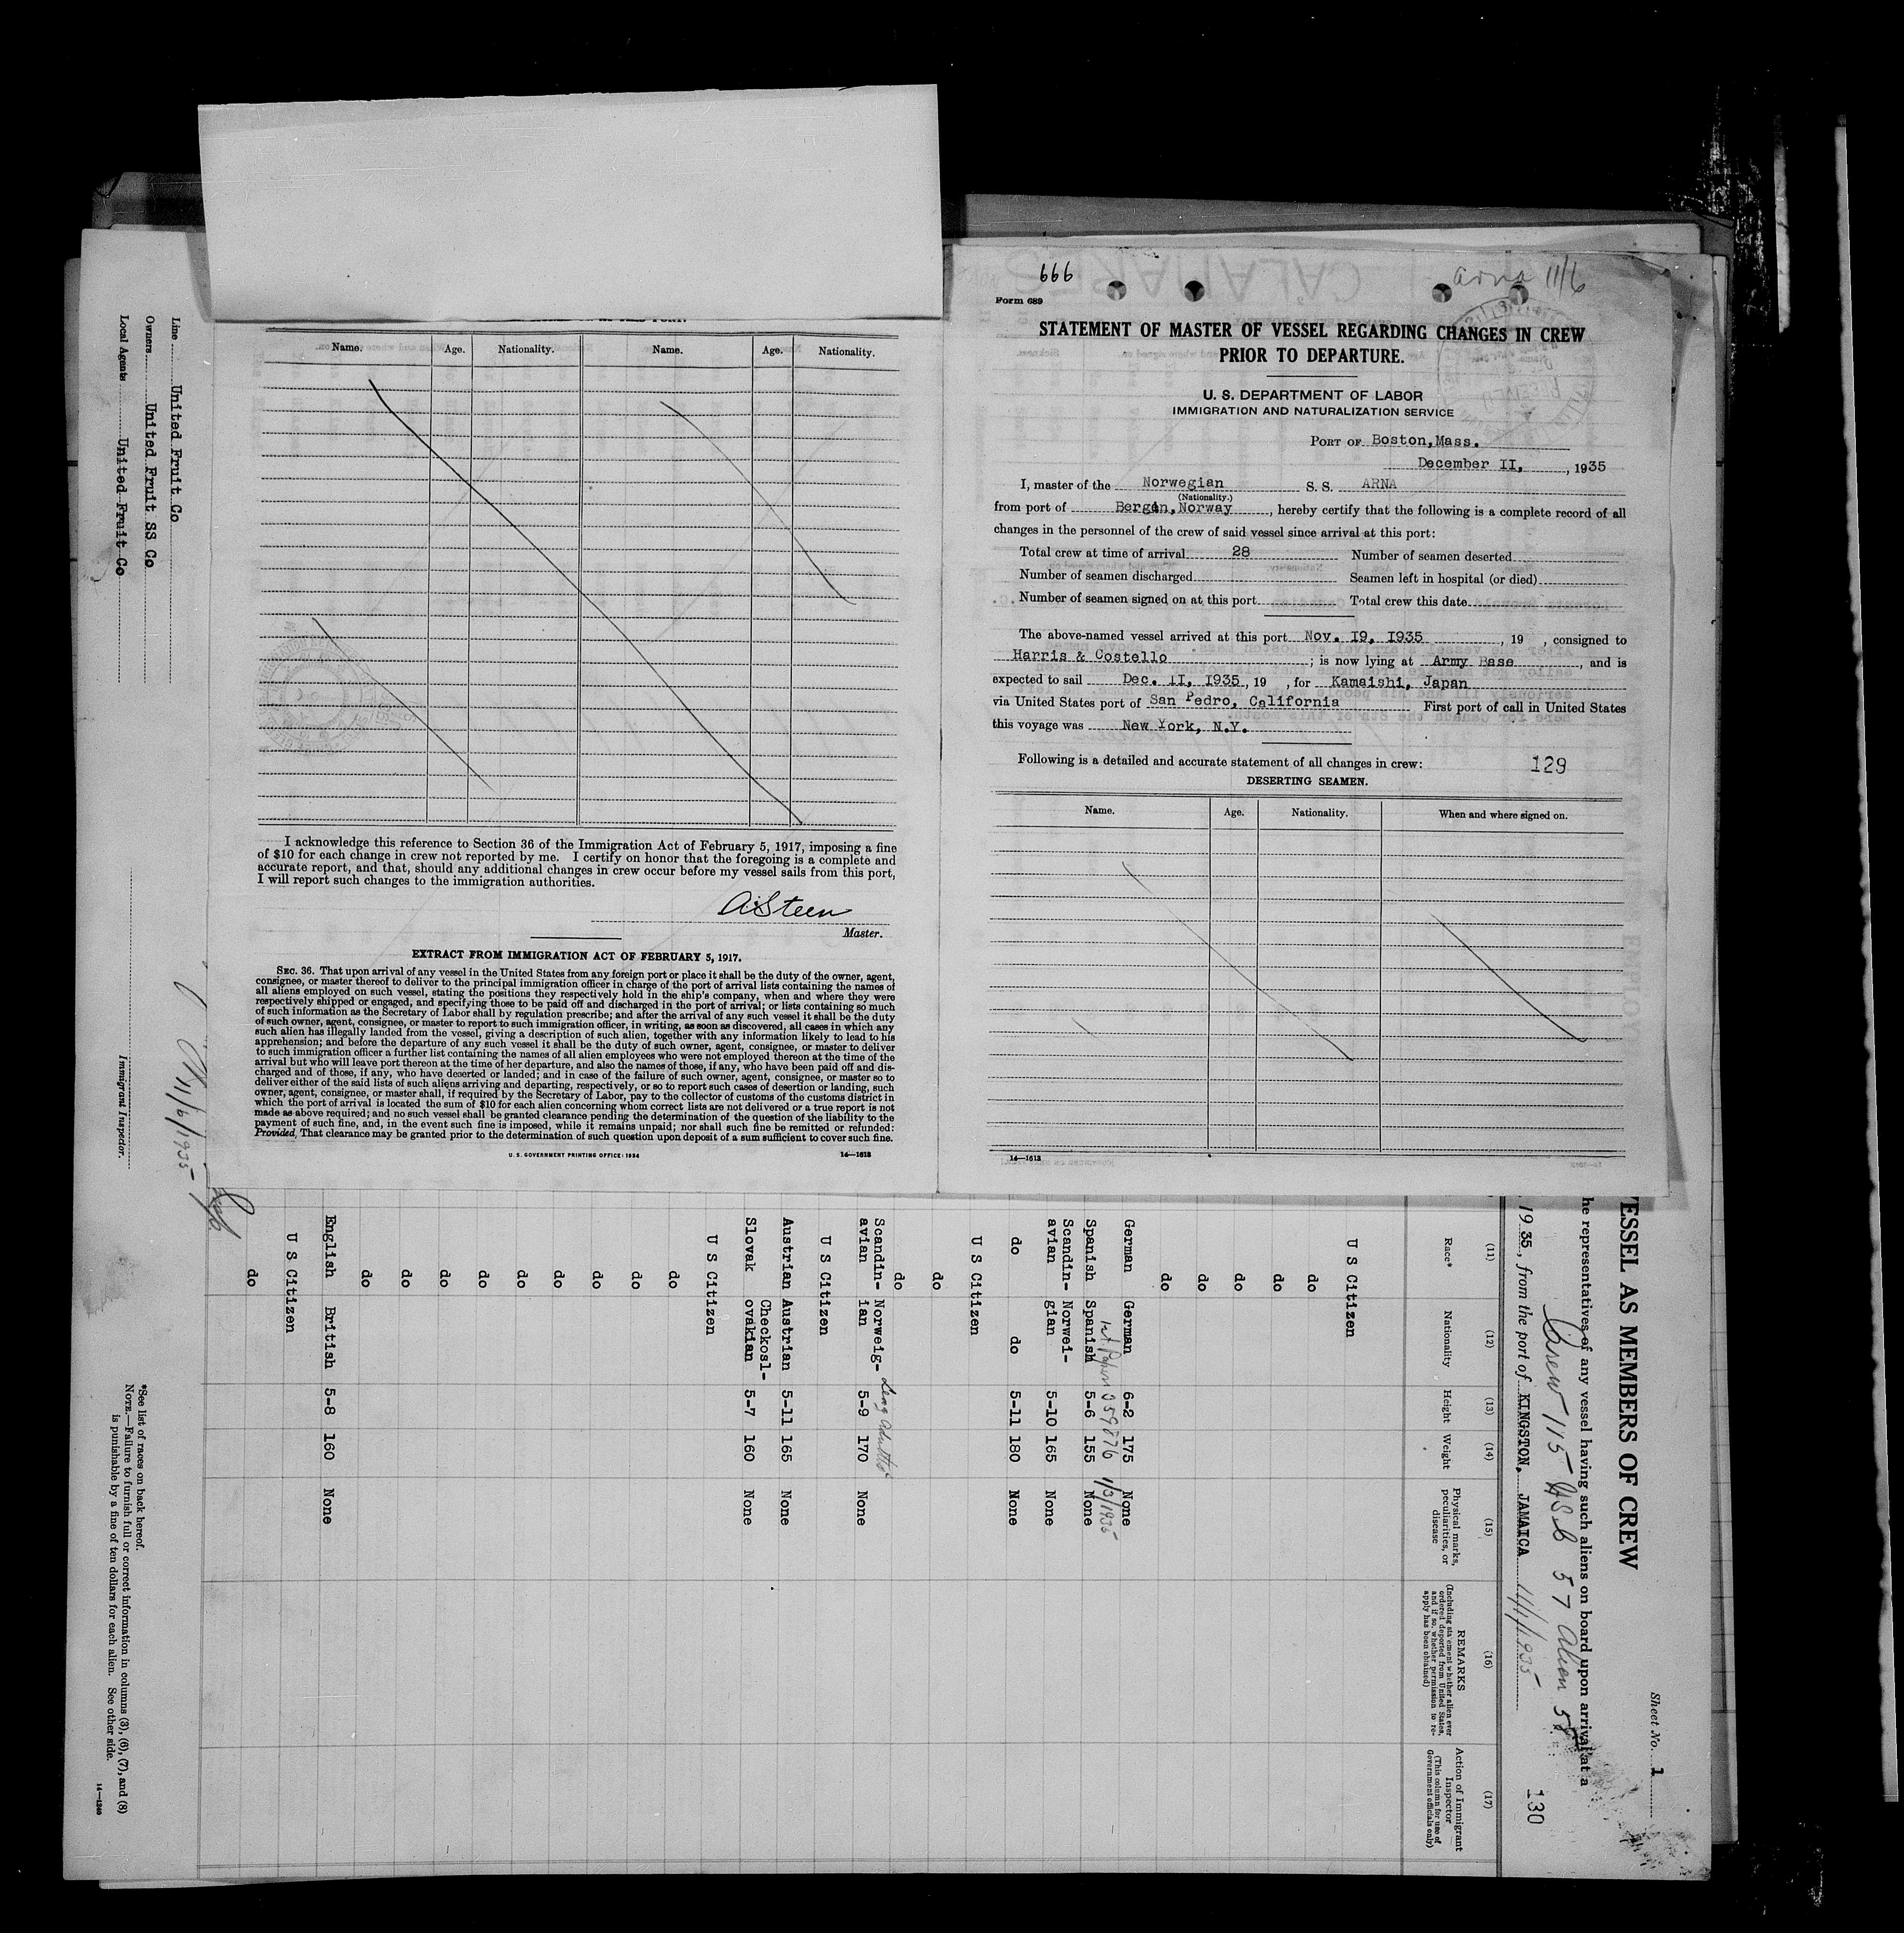 Name. Age. Nationality. Name. Age. Nationality.
I acknowledge this reference to Section 36 of the Immigration Act of February 5, 1917, imposing a fine
of $10 for each change in crew not reported by me. I certify on honor that the foregoing is a complete and
accurate report, and that, should any additional changes in crew occur before my vessel sails from this port,
I will report such changes to the immigration authorities.
A Steen
Master.
EXTRACT FROM IMMIGRATION ACT OF FEBRUARY 5, 1917.
SEC. 36. That upon arrival of any vessel in the United States from any foreign port or place it shall be the duty of the owner, agent,
consignee, or master thereof to deliver to the principal immigration officer in charge of the port of arrival lists containing the names of
all aliens employed on such vessel, stating the positions they respectively hold in the ship's company, when and where they were
respectively shipped or engaged, and specifying those to be paid off and discharged in the port of arrival; or lists containing so much
of such information as the Secretary of Labor shall by regulation prescribe; and after the arrival of any such vessel it shall be the duty
of such owner, agent, consignee, or master to report to such immigration officer, in writing, as soon as discovered, all cases in which any
such alien has illegally landed from the vessel, giving a description of such alien, together with any information likely to lead to his
apprehension; and before the departure of any such vessel it shall be the duty of such owner, agent, consignee, or master to deliver
to such immigration officer a further list containing the names of all alien employees who were not employed thereon at the time of the
arrival but who will leave port thereon at the time of her departure, and also the names of those, if any, who have been paid off and dis-
charged and of those, if any, who have deserted or landed; and in case of the failure of such owner, agent, consignee, or master so to
deliver either of the said lists of such aliens arriving and departing, respectively, or so to report such cases of desertion or landing, such
owner, agent, consignee, or master shall, if required by the Secretary of Labor, pay to the collector of customs of the customs district in
which the port of arrival is located the sum of $10 for each alien concerning whom correct lists are not delivered or a true report is not
made as above required; and no such vessel shall be granted clearance pending the determination of the question of the liability to the
payment of such fine, and, in the event such fine is imposed, while it remains unpaid; nor shall such fine be remitted or refunded:
Provided, That clearance may be granted prior to the determination of such question upon deposit of a sum sufficient to cover such fine.
U. S. GOVERNMENT PRINTING OFFICE: 1934 14—1613
666
arna 11/6
Form 689
STATEMENT OF MASTER OF VESSEL REGARDING CHANGES IN CREW
PRIOR TO DEPARTURE.
U. S. DEPARTMENT OF LABOR
IMMIGRATION AND NATURALIZATION SERVICE
PORT OF Boston,Mass.
December II, , 1935
I, master of the Norwegian S. S. ARNA
(Nationality.)
from port of Bergen,Norway , hereby certify that the following is a complete record of all
changes in the personnel of the crew of said vessel since arrival at this port:
Total crew at time of arrival 28 Number of seamen deserted
Number of seamen discharged Seamen left in hospital (or died)
Number of seamen signed on at this port Total crew this date
The above-named vessel arrived at this port Nov. I9, I935 , 19 , consigned to
Harris & Costello ; is now lying at Army Base , and is
expected to sail Dec. II, I935 , 19 , for Kamaishi, Japan
via United States port of San Pedro, California First port of call in United States
this voyage was New York, N.Y.
Following is a detailed and accurate statement of all changes in crew: 129
DESERTING SEAMEN.
Name. Age. Nationality. When and where signed on.
14—1613
Sheet No. 1
ESSEL AS MEMBERS OF CREW
he representatives of any vessel having such aliens on board upon arrival at a
Crew 115 USC 57 Alien 58
1935, from the port of KINGSTON, JAMAICA 11/1/1935 130
(11) (12) (13) (14) (15) (16) (17)
Race* Nationality Height Weight Physical marks, peculiarities, or disease REMARKS (Including statement whether alien ever ordered deported from United States, and if so, whether permission to re-apply has been obtained) Action of Immigrant Inspector (This column for use of Government officials only)
U S Citizen
do
do
do
do
do
German German 6-2 175 None
359876 1/3/1935
Spanish Spanish 5-6 155 None
Scandin- Norwei-
avian gian 5-10 165 None
do do 5-11 180 None
U S Citizen
do
do
Scandin- Norweig-
avian ian 5-9 170 None
U S Citizen
Austrian Austrian 5-11 165 None
Checkosl-
Slovak ovakian 5-7 160 None
U S Citizen
do
do
do
do
do
do
do
do
do
English British 5-8 160 None
U S Citizen
do
Line United Fruit Co
Owners United Fruit SS Co
Local Agents United Fruit Co
11/6/1935
Immigrant Inspector.
*See list of races on back hereof.
NOTE.—Failure to furnish full or correct information in columns (3), (6), (7), and (8)
is punishable by a fine of ten dollars for each alien. See other side.
14—1240